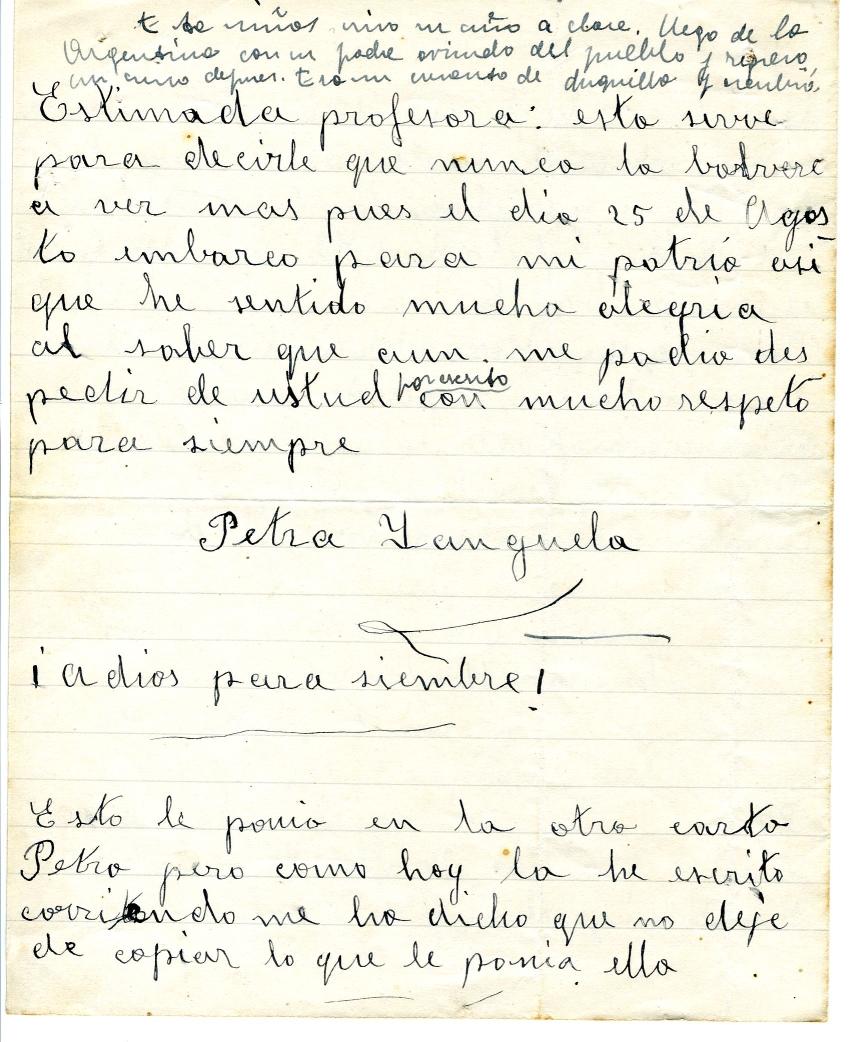 niños vino un año a clase. Llego de la
Argentina con su padre oriundo del pueblo y regreso
un curso depues. Era un encanto de y
Estimada profesora: esta sirve
para decirle que nunca la bolvere
a ver mas pues el dia 25 de Agos
to embarco para mi patria asi
que he sentido mucha alegria
al saber que aun me podia des
pedir de usted por escrito con mucho respeto
para siempre
Petra Yanguela
¡adios para siembre!
Esto le ponia en la otra carta
Petra pero como hoy la he escrito
corriendo me ha dicho que no deje
de copiar lo que le ponia ella